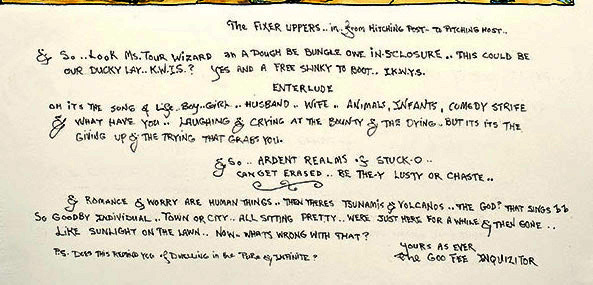 The Fixer uppers.. in.. from Hitching Post - to Pitching Host..
& So.. Look Ms. Tour Wizard an A Dough Be Bungle One in.sclosure.. This could be
our Ducky Lay.. K.W.I.S.? Yes and a free Slinky to boot.. I.K.W.Y.S.
Enterlude
Oh its the song of Life.. Boy.. Girl.. Husband.. Wife.. Animals, Infants, Comedy Strife
& What have you.. Laughing & Crying at the Bounty & the Dying.. But its its the
Giving up & the trying that grabs you.
& So.. Ardent Realms of Stuck-O..
Can get erased.. Be the-y Lusty or Chaste..
& Romance & Worry are human things.. Then theres Tsunamis & Volcanos.. The God? that sings
So Goodby individual.. Town or City.. All sitting pretty.. Were just here for a while & then gone..
Like sunlight on the lawn.. Now- whats wrong with that?
Yours as ever
P.S. Does this remind you of Dwelling in the Pure of Infinite? The Goo Fee Inquizitor